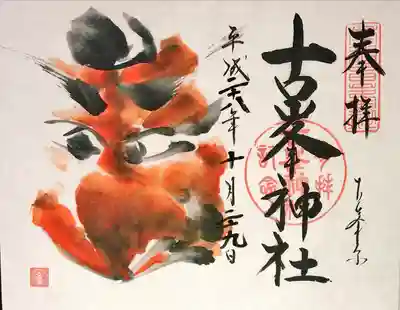 奉拝
古峯神社
平成二十八年十月二十九日